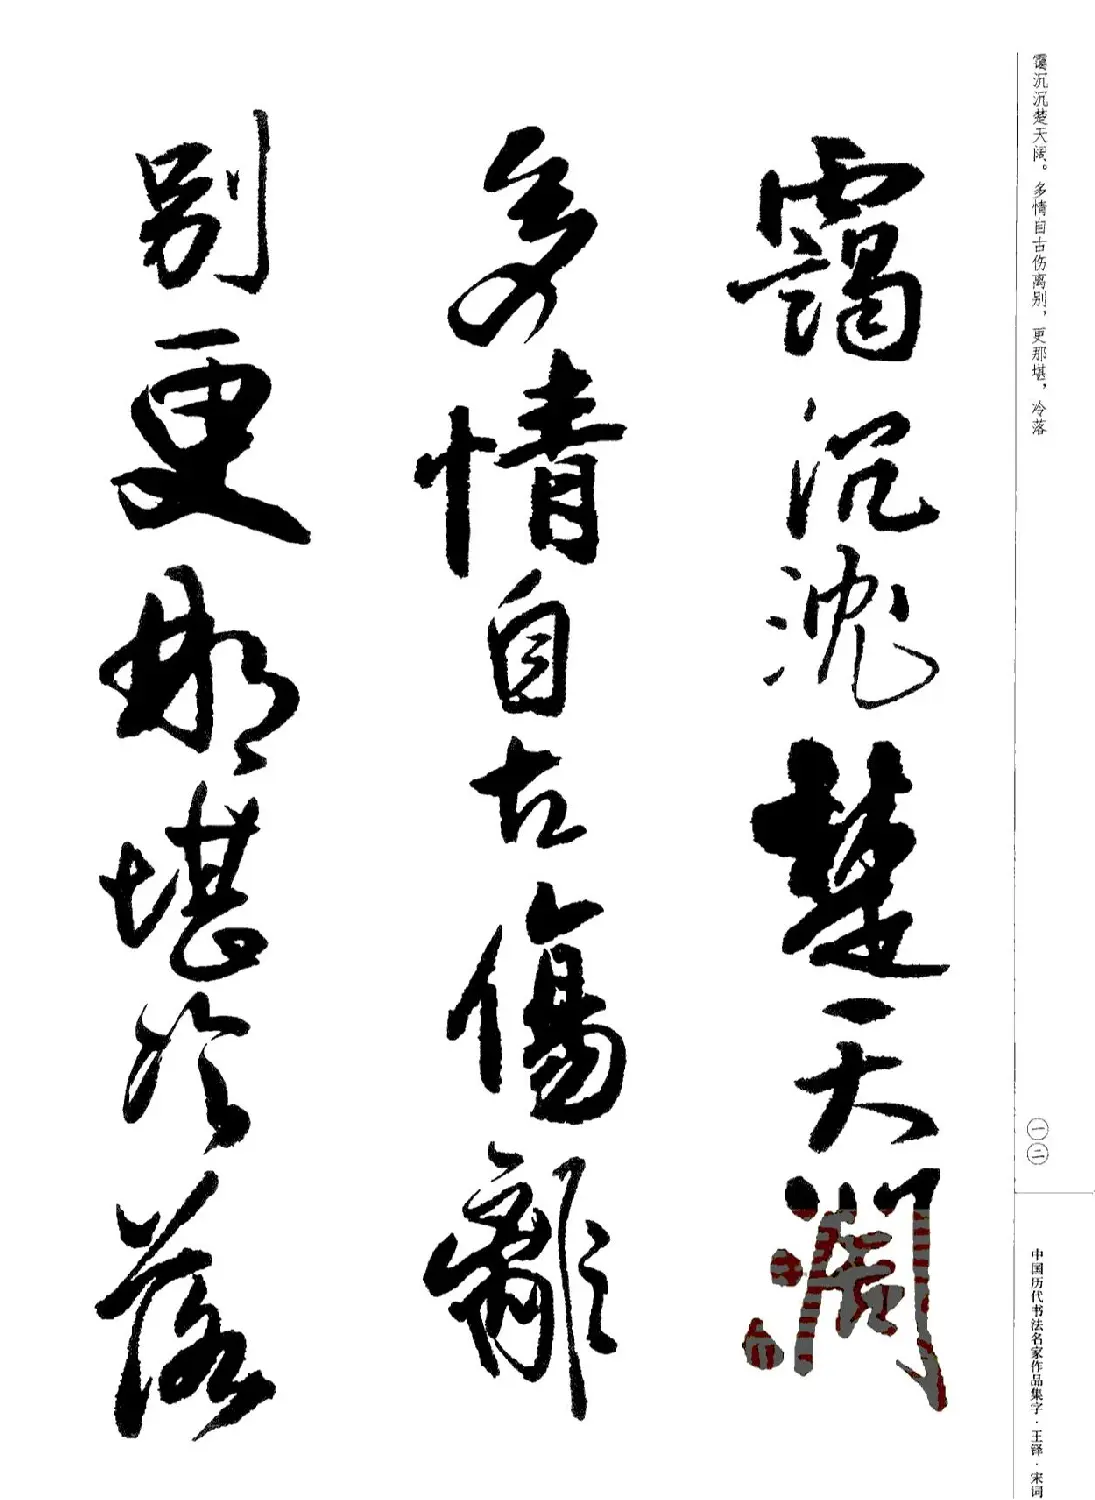 霭沉沉楚天阔。多情自古伤离别，更那堪，冷落
霭沉沉楚天阔
多情自古傷離
别更那堪冷落
一二
中国历代书法名家作品集字·王铎·宋词